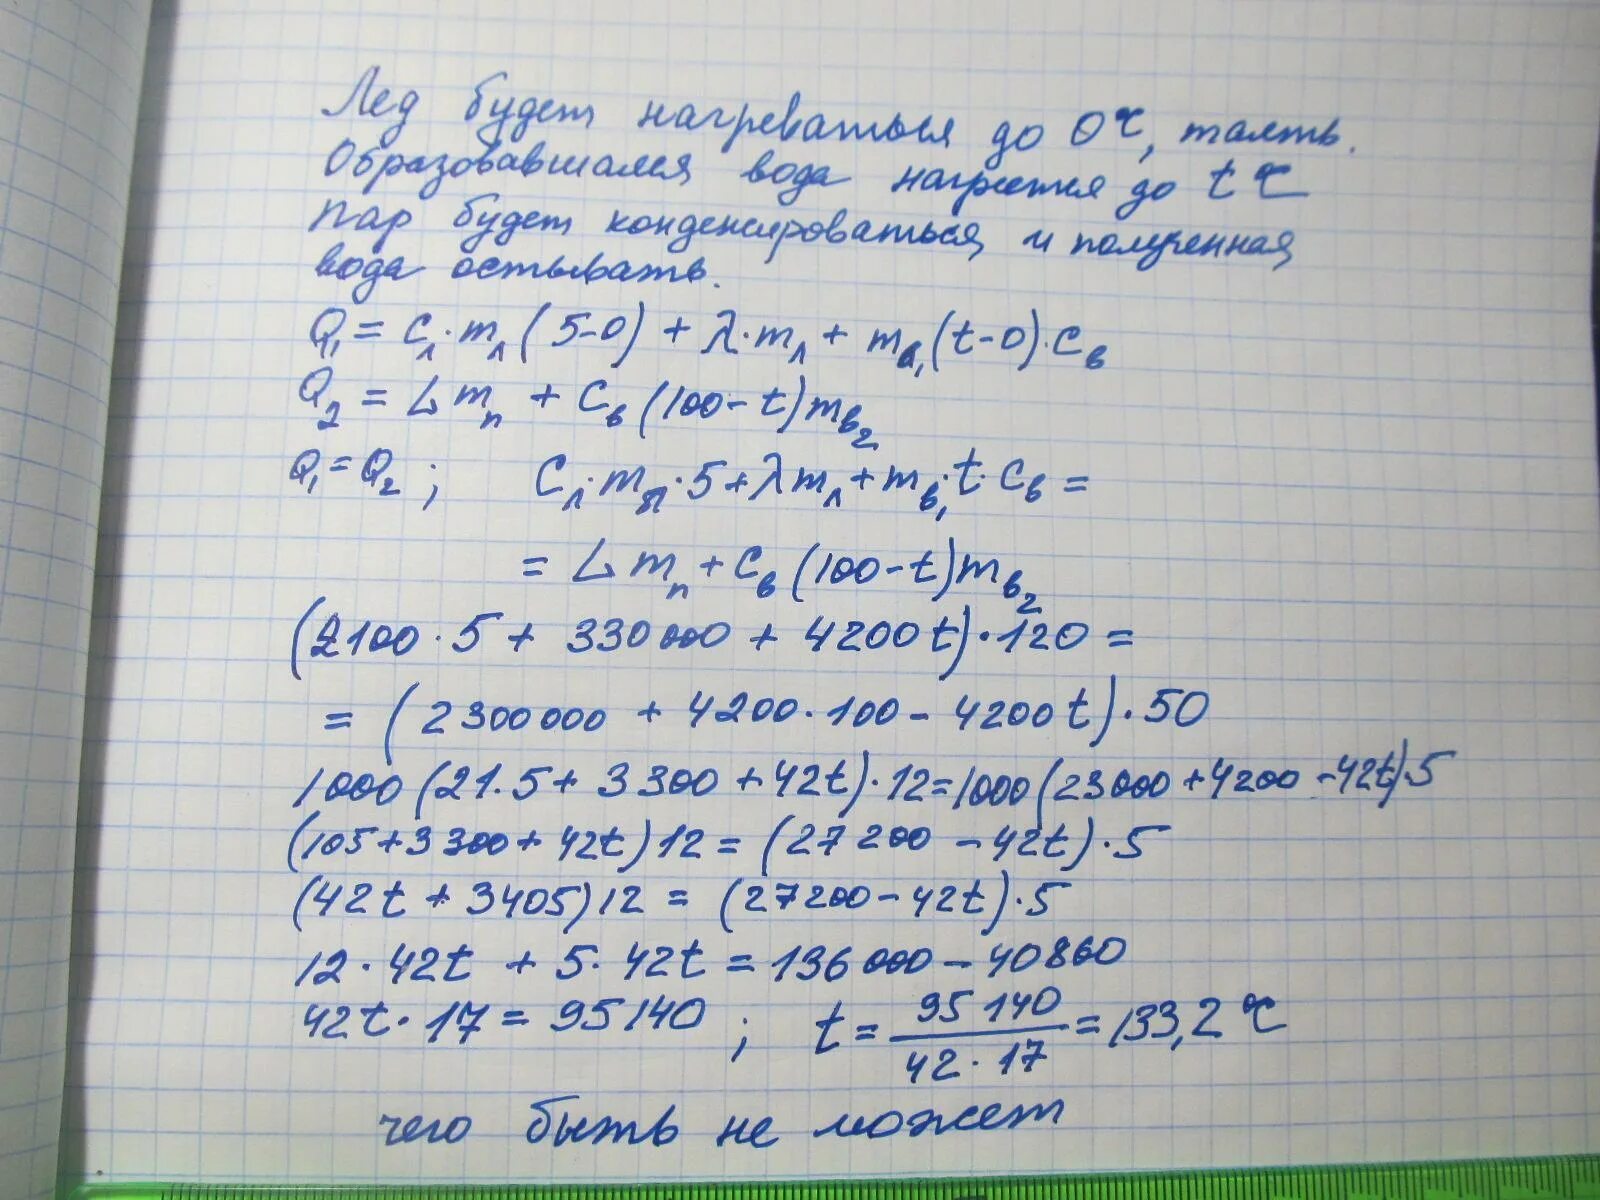 Лед будет нагреваться до 0°C, таять.
Образовавшаяся вода нагреется до t°C
Пар будет конденсироваться, и полученная
вода остывать.
Q₁ = cл·mл(5-0) + λ·mл + mв₁(t-0)·cв
Q₂ = Lmп + cв(100-t)mв₂
Q₁ = Q₂ ; cл·mл·5 + λmл + mв₁·t·cв =
= Lmп + cв(100-t)mв₂
(2100·5 + 330000 + 4200t)·120 =
= (2300000 + 4200·100 - 4200t)·50
1000(21·5 + 3300 + 42t)·12 = 1000(23000 + 4200 - 42t)·5
(105 + 3300 + 42t)12 = (27200 - 42t)·5
(42t + 3405)12 = (27200 - 42t)·5
12·42t + 5·42t = 136000 - 40860
42t·17 = 95140 ; t = 95140 / 42·17 = 133,2°C
чего быть не может